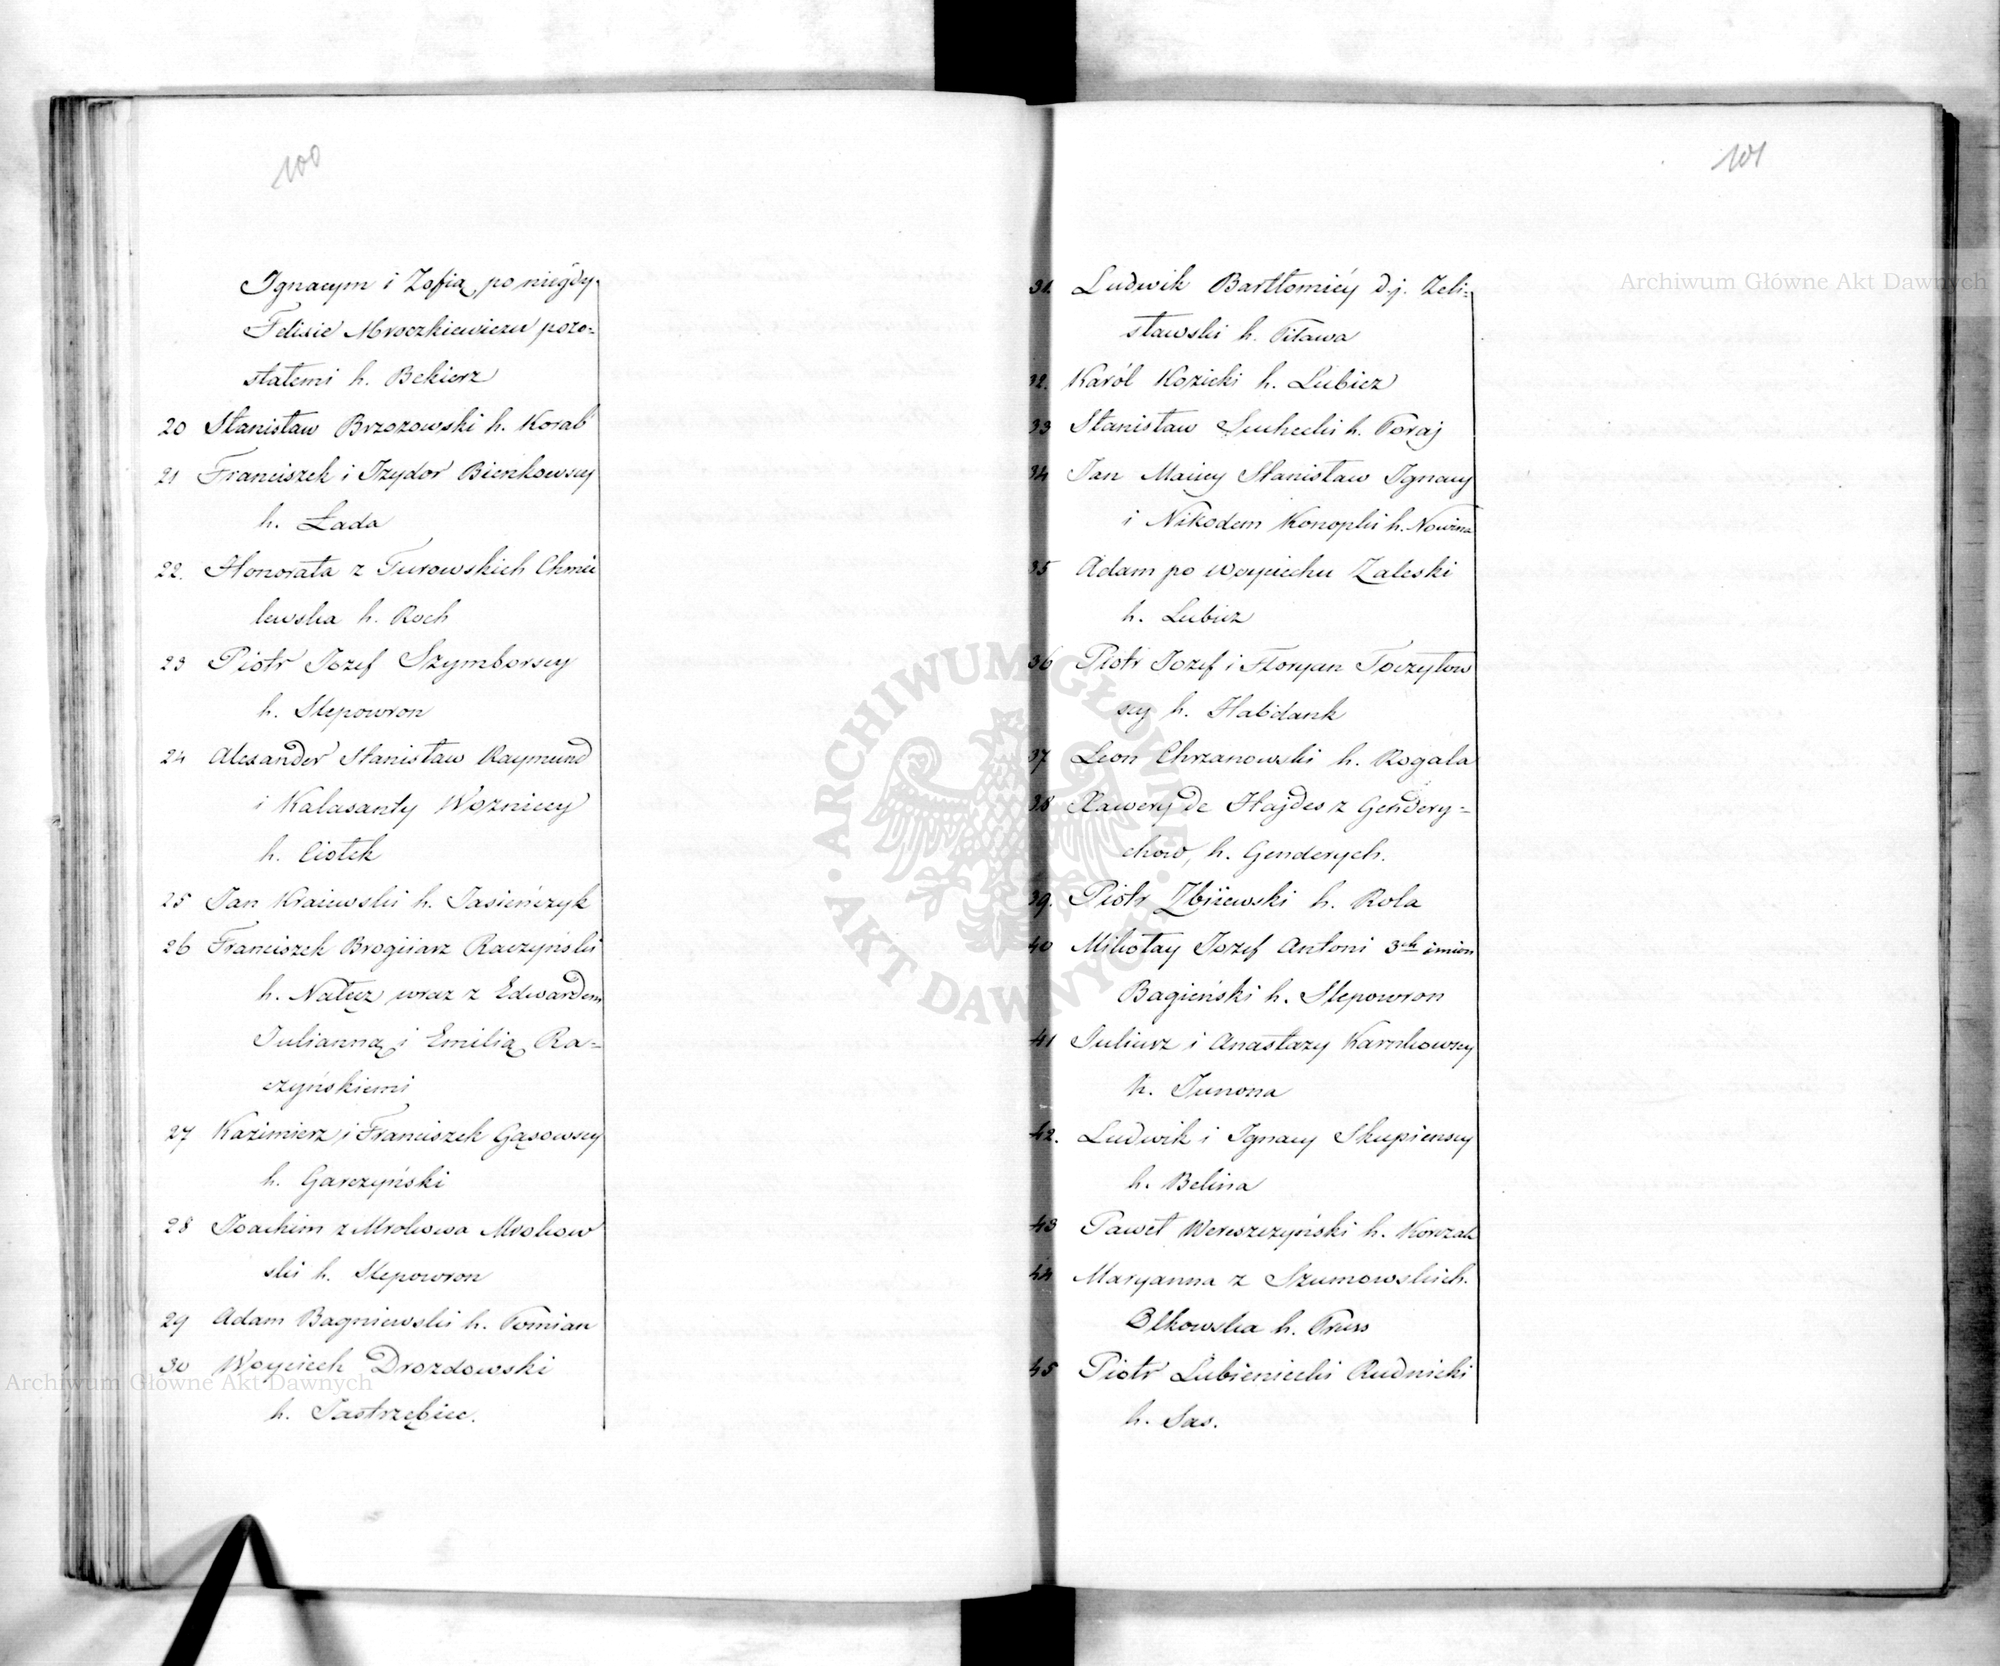 100
Ignacym i Zofią po niegdy
Felisie Mroczkiewiczu pozo-
stałemi h. Bekierz
20 Stanisław Brzozowski h. Korab
21 Franciszek i Izydor Bienkowscy
h. Łada
22. Honorata z Turowskich Chmie
lewska h. Roch
23 Piotr Jozef Szymborscy
h. Slepowron
24 Alexander Stanisław Raymund
i Kalasanty Wozniccy
h. Ciołek
25 Jan Kraiewski h. Jasieńczyk
26 Franciszek Raczyński
h. Nałęcz wraz z Edwardem
Julianną i Emilią Ra-
czyńskiemi
27 Kazimierz i Franciszek Gąsowscy
h. Garczyński
28 Joachim z Mrokowa Mrokow
ski h. Slepowron
29 Adam Bagniewski h. Pomian
30 Woyciech Drozdowski
h. Jastrzębiec.
101
31. Ludwik Bartłomiéy d.j. Zeli-
sławski h. Pilawa
32. Karól Kozicki h. Lubicz
33 Stanisław Suchecki h. Poraj
34 Jan Maciey Stanisław Ignacy
i Nikodem Konopki h. Nowina
35 Adam po Woyciechu Zaleski
h. Lubicz
36 Piotr Jozef i Floryan Toczyłow
scy h. Habdank
37 Leon Chrzanowski h. Rogala
38 Xawery de Hajdes z Gendery-
chow, h. Genderych.
39. Piotr Zbijewski h. Rola
40 Mikołay Jozef Antoni 3ch imion
Bagieński h. Slepowron
41 Juliusz i Anastazy Karnkowscy
h. Junona
42. Ludwik i Ignacy Skupienscy
h. Belina
43 Paweł Wereszczyński h. Korczak
44 Maryanna z Szumowskich
Olkowska h. Pruss
45 Piotr Lubieniecki Rudnicki
h. Sas.
Archiwum Główne Akt Dawnych
Archiwum Główne Akt Dawnych
ARCHIWUM GŁÓWNE AKT DAWNYCH